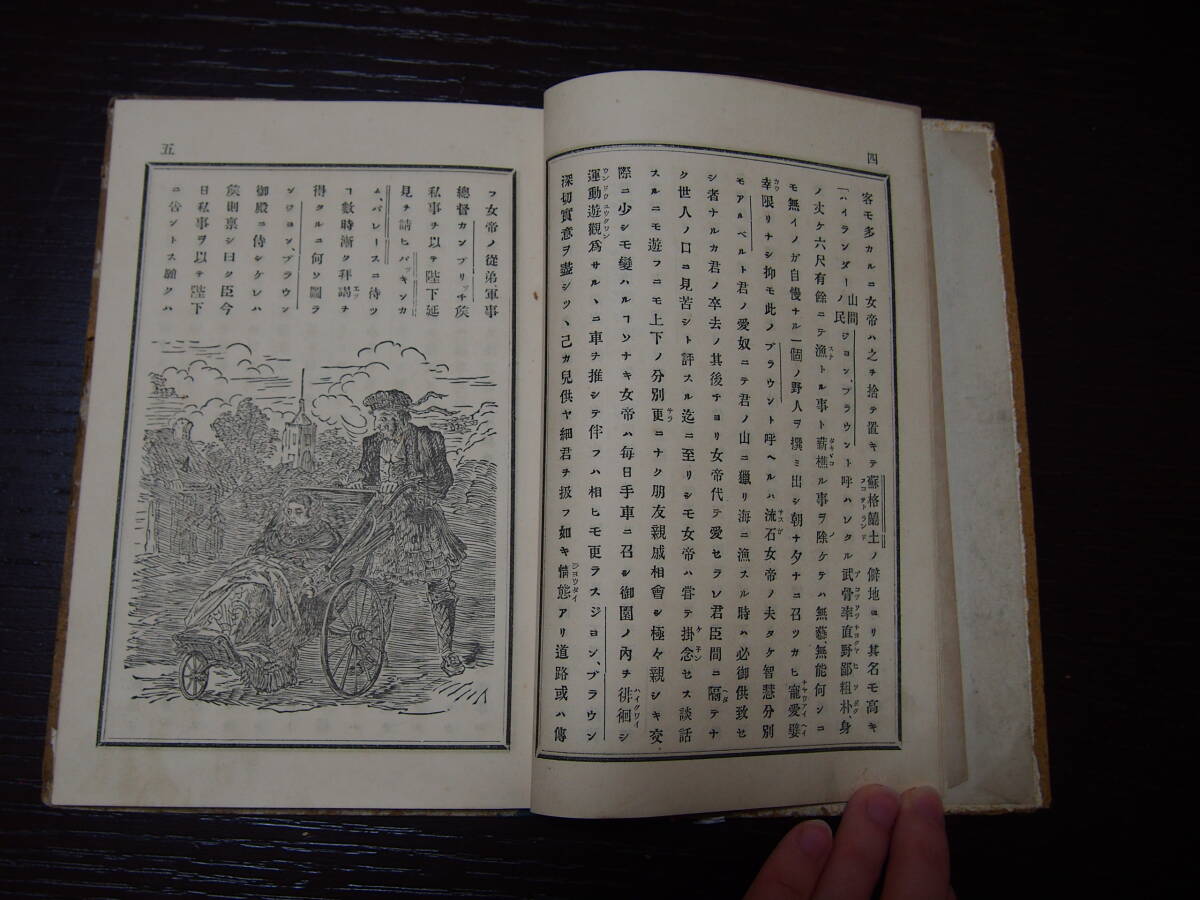 四
客モ多カルニ女帝ハ之ヲ拾テ置キテ蘇格蘭土ノ僻地ヨリ其名モ高キ
「ハイランダー」ノ民ジヨン、ブラウント呼ハレタル武骨率直野鄙粗朴、身
山間
ノ丈ケ六尺有餘ニテ漁トル事ト薪樵ル事ヲ除ケテハ無藝無能何ンニ
モ無イノガ自慢ナル一個ノ野人ヲ撰ミ出シ朝ナ夕ナニ召ツカヒ寵愛嬖
幸限リナシ抑モ此ノブラウント呼ヘルハ流石女帝ノ夫タケ智慧分別
モアルベルト君ノ愛奴ニテ君ノ山ニ獵リ海ニ漁スル時ハ必御供致セ
シ者ナルカ君ノ卒去ノ其後チヨリ女帝代テ愛セラレ君臣間ニ隔テナ
ク世人ノ口ニ見苦シト評スル迄ニ至リシモ女帝ハ嘗テ掛念セス談話
スルニモ遊フニモ上下ノ分別更ニナク朋友親戚相會シ極々親シキ交
際ニ少シモ變ハルヿナキ女帝ハ毎日手車ニ召シ御園ノ內チ徘徊シ
運動遊觀爲サルヽニ車チ推シテ伴フハ相ヒモ更ラスジヨン、ブラウン
深切實意ヲ盡シツヽ己カ兒供ヤ細君チ扱フ如キ情態アリ道路或ハ傳
五
フ女帝ノ從弟軍事
總督カンブリッヂ侯
私事チ以テ陛下延
見チ請ヒバッキンカ
ム、パレースニ待ツ
ヿ數時漸ク拜謁チ
得タルニ何ソ圖ラ
ンジヨン、ブラウン
御殿ニ侍シケレハ
侯則禀シ曰ク臣今
日私事ヲ以テ陛下
ニ告ントス願クハ